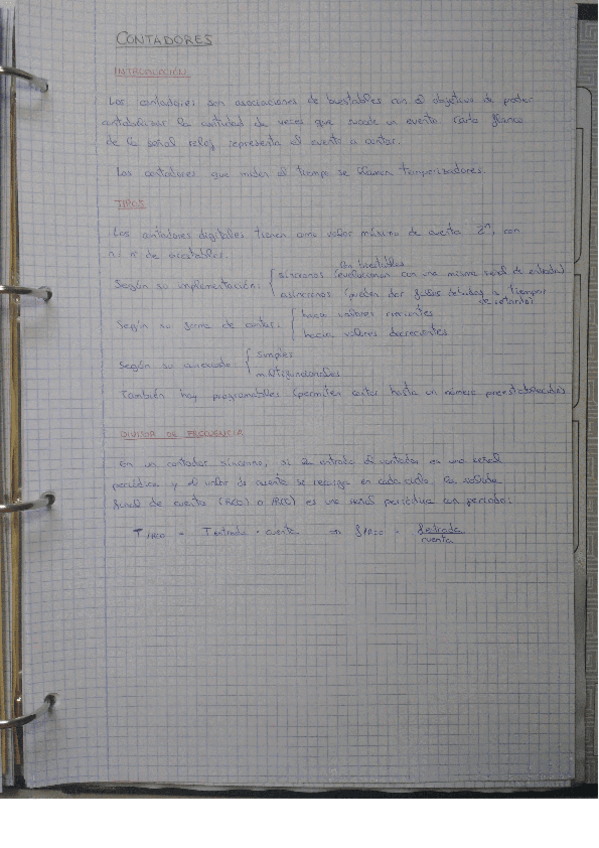 CONTADORES
INTRODUCCIÓN
Los contadores son asociaciones de biestables con el objetivo de poder
contabilizar la cantidad de veces que sucede un evento. Cada flanco
de la señal reloj representa el evento a contar.
Los contadores que miden el tiempo se llaman temporizadores.
TIPOS
Los contadores digitales tienen como valor máximo de cuenta 2ⁿ, con
n: nº de biestables.
Según su implementación: { síncronos (los biestables evolucionan con una misma señal de entrada)
asíncronos (pueden dar fallos debidos a tiempos de retardo)
Según su forma de contar: { hacia valores crecientes
hacia valores decrecientes
Según su avanzado: { simples
multifuncionales
También hay programables (permiten contar hasta un número preestablecido)
DIVISOR DE FRECUENCIA
En un contador síncrono, si la entrada del contador es una señal
periódica y el valor de cuenta se recarga en cada ciclo, la salida
final de cuenta (RCO) es una señal periódica con periodo:
T = Tentrada · cuenta ⇒ f = fentrada / cuenta